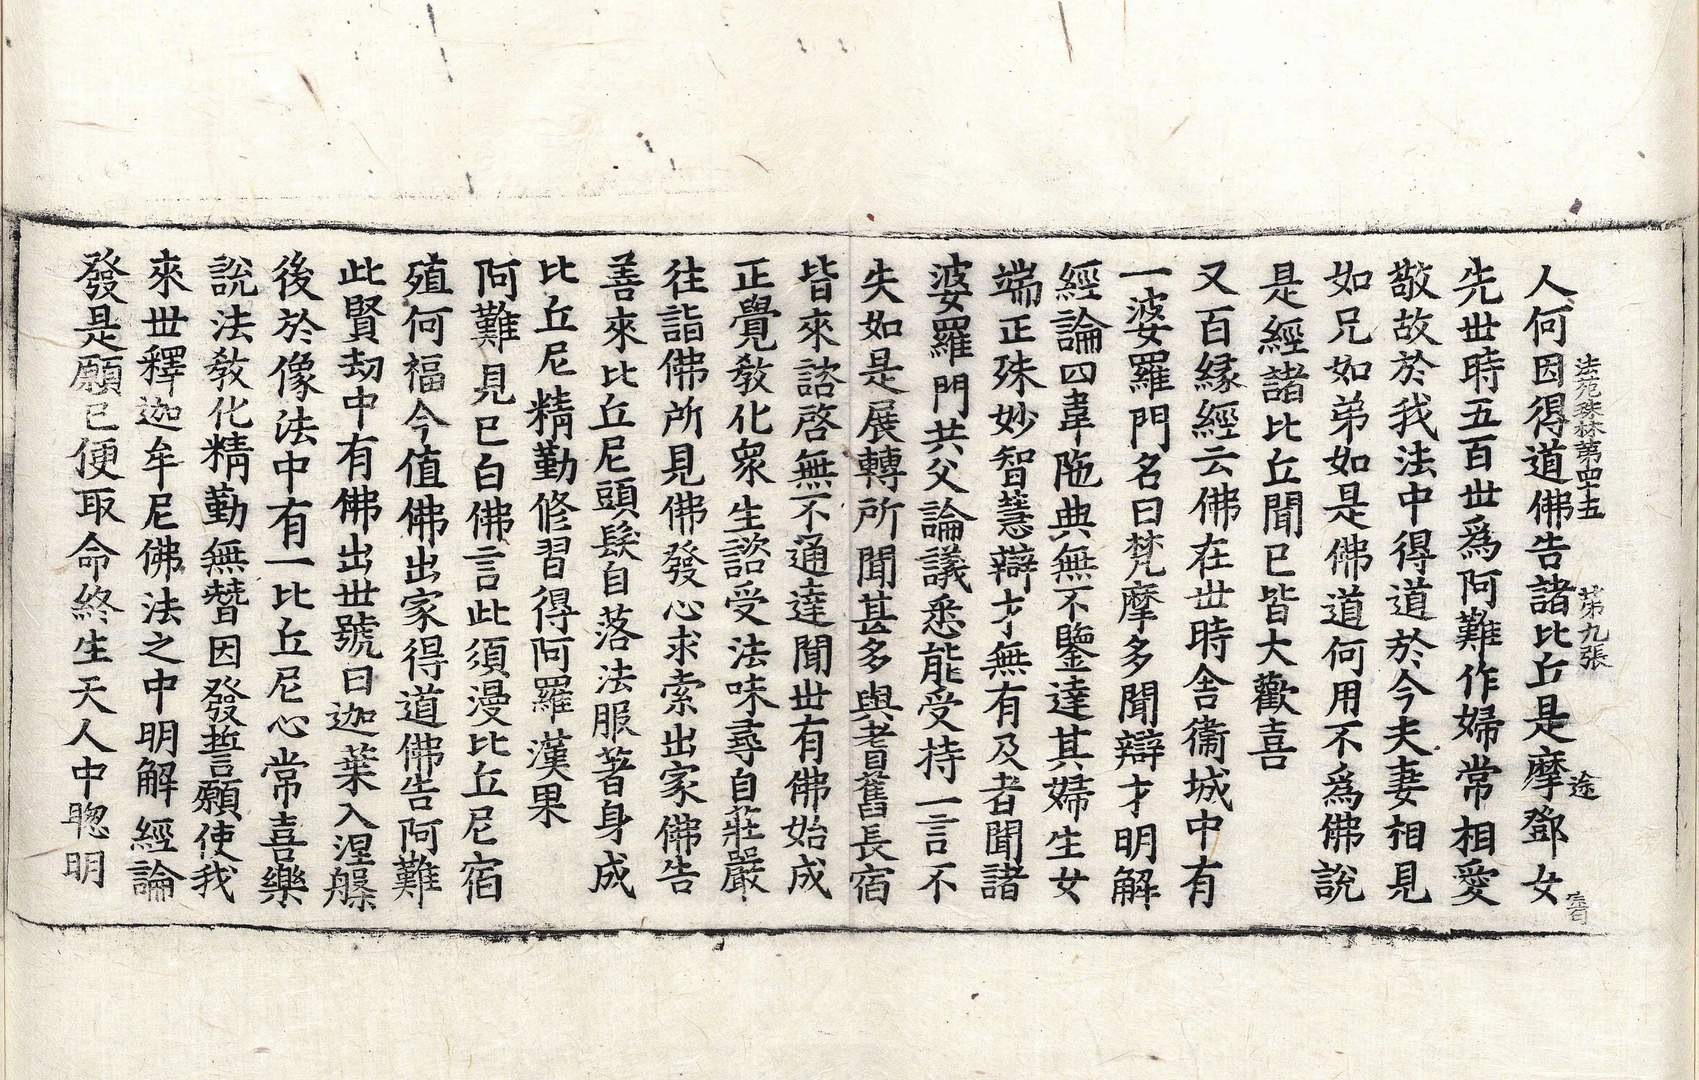 法苑珠林第四十五 第九張 途
人何因得道佛告諸比丘是摩鄧女
先世時五百世爲阿難作婦常相愛
敬故於我法中得道於今夫妻相見
如兄如弟如是佛道何用不爲佛說
是經諸比丘聞已皆大歡喜
又百緣經云佛在世時舍衞城中有
一婆羅門名曰梵摩多聞辯才明解
經論四韋陁典無不鑒達其婦生女
端正殊妙智慧辯才無有及者聞諸
婆羅門共父論議悉能受持一言不
失如是展轉所聞甚多與耆舊長宿
皆來諮啓無不通達聞世有佛始成
正覺敎化衆生諮受法味尋自莊嚴
往詣佛所見佛發心求索出家佛告
善來比丘尼頭髮自落法服著身成
比丘尼精勤修習得阿羅漢果
阿難見已白佛言此須漫比丘尼宿
殖何福今值佛出家得道佛告阿難
此賢劫中有佛出世號曰迦葉入涅槃
後於像法中有一比丘尼心常喜樂
說法敎化精勤無替因發誓願使我
來世釋迦牟尼佛法之中明解經論
發是願已便取命終生天人中聰明